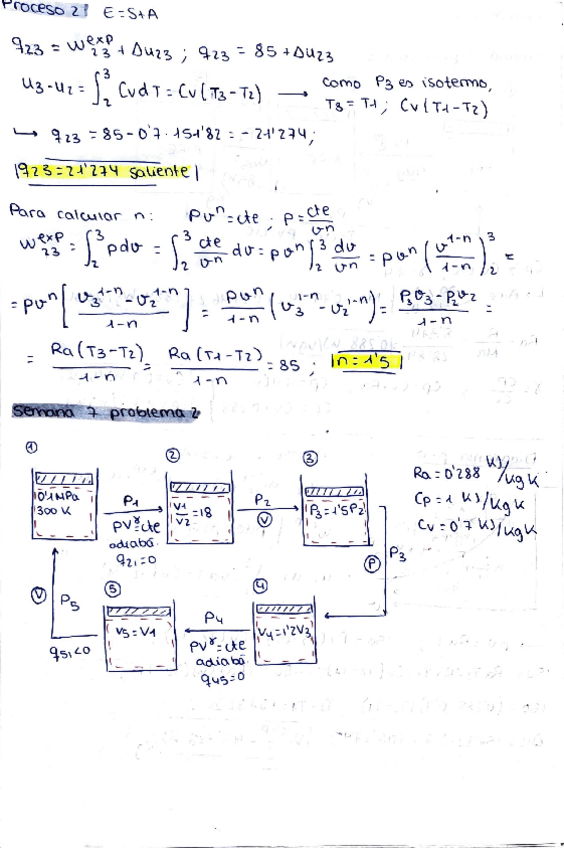 Proceso 2: E=S+A
q23 = W23^exp + Δu23 ; q23 = 85 + Δu23
u3-u2 = ∫2^3 Cv dT = Cv (T3-T2) ⟶ como P3 es isotermo,
T3 = T1 ; Cv (T1-T2)
↪ q23 = 85 - 0'7 · 151'82 = -21'274 ;
|q23 = 21'274 saliente|
Para calcular n: Pv^n = cte ; P = cte/v^n
W23^exp = ∫2^3 p dv = ∫2^3 cte/v^n dv = pv^n ∫2^3 dv/v^n = pv^n (v^(1-n)/(1-n))2^3 =
= pv^n [(v3^(1-n) - v2^(1-n))/(1-n)] = pv^n/(1-n) (v3^(1-n) - v2^(1-n)) = (P3v3 - P2v2)/(1-n) =
= Ra(T3-T2)/(1-n) = Ra(T1-T2)/(1-n) = 85 ; |n=1'5|
Semana 7 problema 2
① ② ③
0'1 MPa
300 K
P1
PVᵞ=cte
adiabá.
q21=0
V1/V2 = 18
P2
Ⓥ
P3=1'5P2
Ra = 0'288 KJ/kg K
Cp = 1 KJ/kg K
Cv = 0'7 KJ/kg K
Ⓟ P3
④
V4=1'2V3
P4
PVᵞ=cte
adiabá.
q45=0
⑤
V5=V1
Ⓥ P5
q51<0